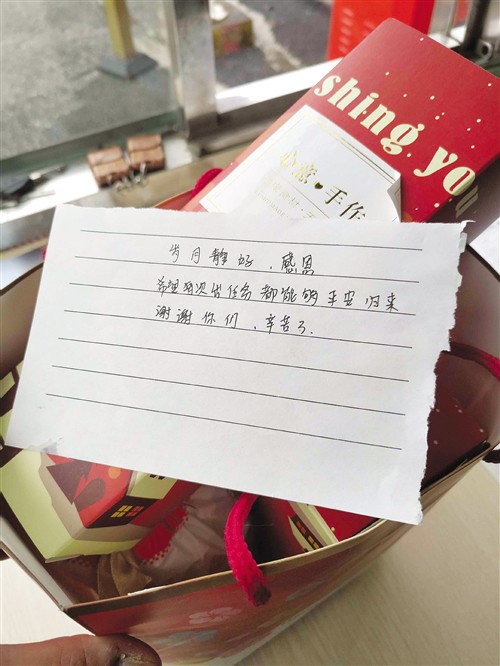 shing yo
心意♥手作
岁月静好，感恩
希望每次出任务都能够平安归来
谢谢你们，辛苦了.